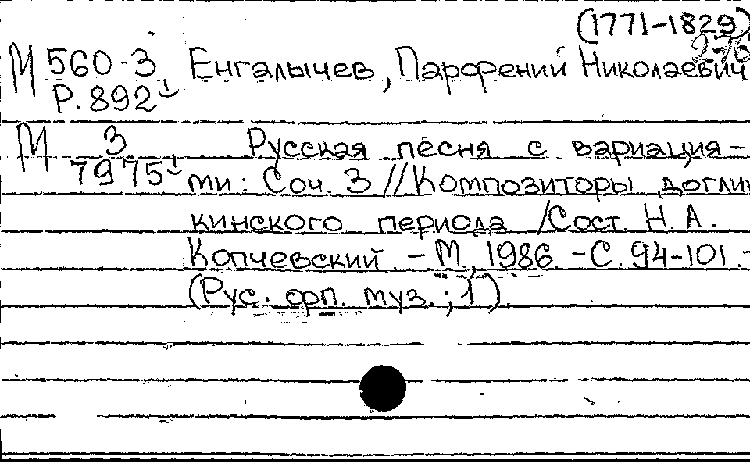 (1771-1829)
М 560-3 Енгалычев, Парфений Николаевич
Р.892¹
М 3 Русская песня с вариация-
7975¹ ми: Соч. 3 // Композиторы доглин
кинского периода / Сост. Н.А.
Копчевский. - М., 1986. - С. 94-101. -
(Рус. фп. муз.; 1).